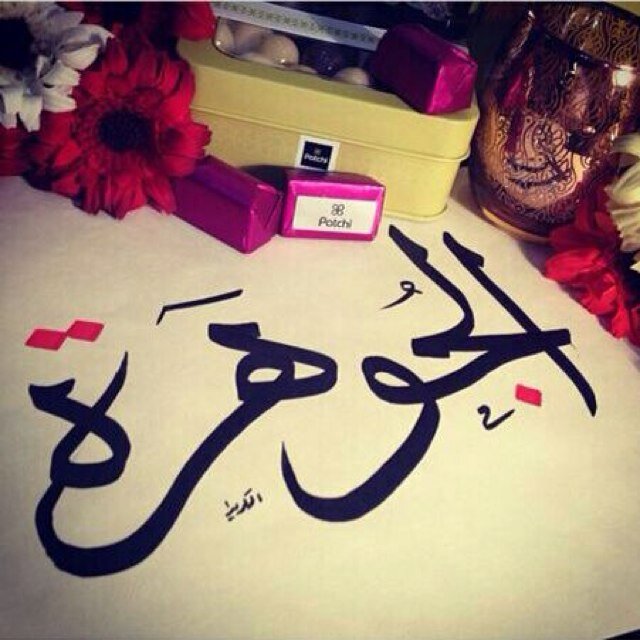 Patchi
Patchi
الجُوهَرة